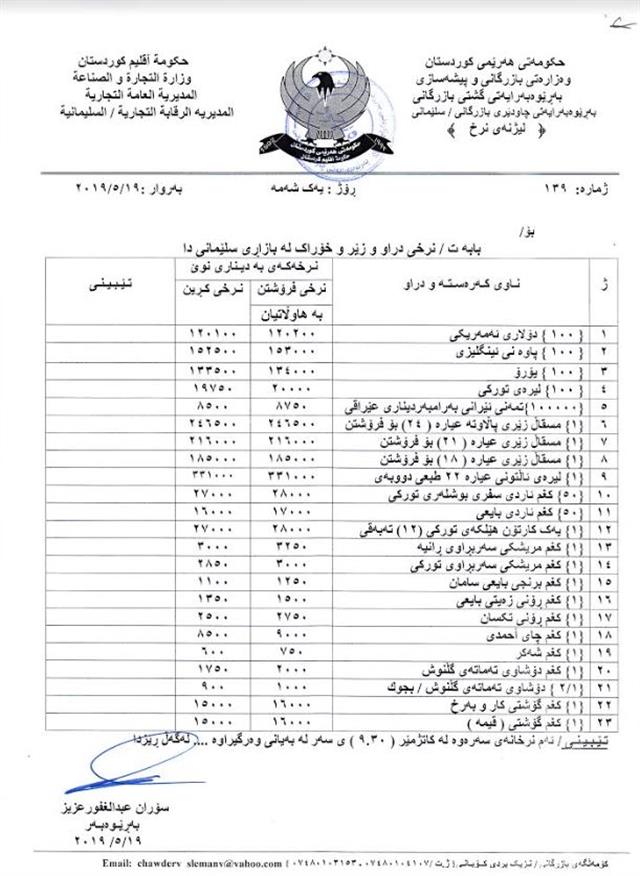 حکومەتی هەرێمی کوردستان
وەزارەتی بازرگانی و پیشەسازی
بەڕێوەبەرایەتی گشتی بازرگانی
بەڕێوەبەرایەتی چاودێری بازرگانی / سلێمانی
﴿ لیژنەی نرخ ﴾
حكومة أقليم كوردستان
وزارة التجارة و الصناعة
المديرية العامة التجارية
المديريه الرقابة التجارية / السليمانية
حکومەتی هەرێمی کوردستان
حكومة اقليم كوردستان
ژمارە: ١٣٩ ڕۆژ : یەک شەمە بەروار :٢٠١٩/٥/١٩
بۆ/
بابه ت / نرخی دراو و زێر و خۆراک لە بازاڕی سلێمانی دا
ژ ناوی کەرەستە و دراو نرخەکەی بە دیناری نوێ تێبینی
نرخی فرۆشتن بە هاوڵاتیان نرخی کڕین
١ { ١٠٠ } دۆلاری ئەمەریکی ١٢٠٢٠٠ ١٢٠١٠٠
٢ { ١٠٠ } پاوە نی ئینگلیزی ١٥٣٠٠٠ ١٥٢٥٠٠
٣ { ١٠٠ } یۆرۆ ١٣٤٠٠٠ ١٣٣٥٠٠
٤ { ١٠٠ } لیرەی تورکی ٢٠٠٠٠ ١٩٧٥٠
٥ {١٠٠٠٠٠}تمەنی ئێرانی بەرامبەردیناری عێراقی ٨٧٥٠ ٨٥٠٠
٦ {١} مسقاڵ زێری پاڵاوتە عیارە ( ٢٤ ) بۆ فرۆشتن ٢٤٦٥٠٠ ٢٤٦٥٠٠
٧ {١} مسقاڵ زێری عیارە ( ٢١ ) بۆ فرۆشتن ٢١٦٠٠٠ ٢١٦٠٠٠
٨ {١} مسقاڵ زێری عیارە ( ١٨ ) بۆ فرۆشتن ١٨٥٠٠٠ ١٨٥٠٠٠
٩ {١} لیرەی ئاڵتونی عیارە ٢٢ طبعی دووبەی ٣٣١٠٠٠ ٣٣١٠٠٠
١٠ {٥٠} کغم ئاردی سفری بوشلەری تورکی ٢٨٠٠٠ ٢٧٠٠٠
١١ {٥٠} کغم ئاردی بایعی ١٧٠٠٠ ١٦٠٠٠
١٢ {١} یەک کارتۆن هێلکەی تورکی (١٢) تەبەقی ٢٨٠٠٠ ٢٧٠٠٠
١٣ {١} کغم مریشکی سەربڕاوی ڕانیە ٣٢٥٠ ٣٠٠٠
١٤ {١} کغم مریشکی سەربڕاوی تورکی ٣٠٠٠ ٢٨٥٠
١٥ {١} کغم برنجی بایعی سامان ١٢٥٠ ١١٠٠
١٦ {١} کغم ڕۆنی زەیتی بایعی ١٥٠٠ ١٣٥٠
١٧ {١} کغم ڕۆنی تکسان ٢٧٥٠ ٢٥٠٠
١٨ {١} کغم چای أحمدی ٩٠٠٠ ٨٥٠٠
١٩ {١} کغم شەکر ٧٥٠ ٦٠٠
٢٠ {١} کغم دۆشاوی تەماتەی گڵنوش ٢٠٠٠ ١٧٥٠
٢١ { ٢/١ } دۆشاوی تەماتەی گڵنوش / بچوک ١٠٠٠ ٩٠٠
٢٢ {١} کغم گۆشتی کار و بەرخ ١٦٠٠٠ ١٥٠٠٠
٢٣ {١} کغم گۆشتی ( قیمە ) ١٦٠٠٠ ١٥٠٠٠
تێبینی / ئەم نرخانەی سەرەوە لە کاتژمێر ( ٩.٣٠ ) ی سەر لە بەیانی وەرگیراوە .... لەگەڵ ڕێزدا
سۆران عبدالغفورعزیز
بەڕێوەبەر
٢٠١٩ /٥/١٩
کۆمەڵگەی بازرگانی / نزیک بردی کۆبانی { ژ.ت /٠٧٤٨٠١٠٤١٠٧ - ٠٧٤٨٠١٠٣١٥٣ } Email: chawderv_slemany@yahoo.com